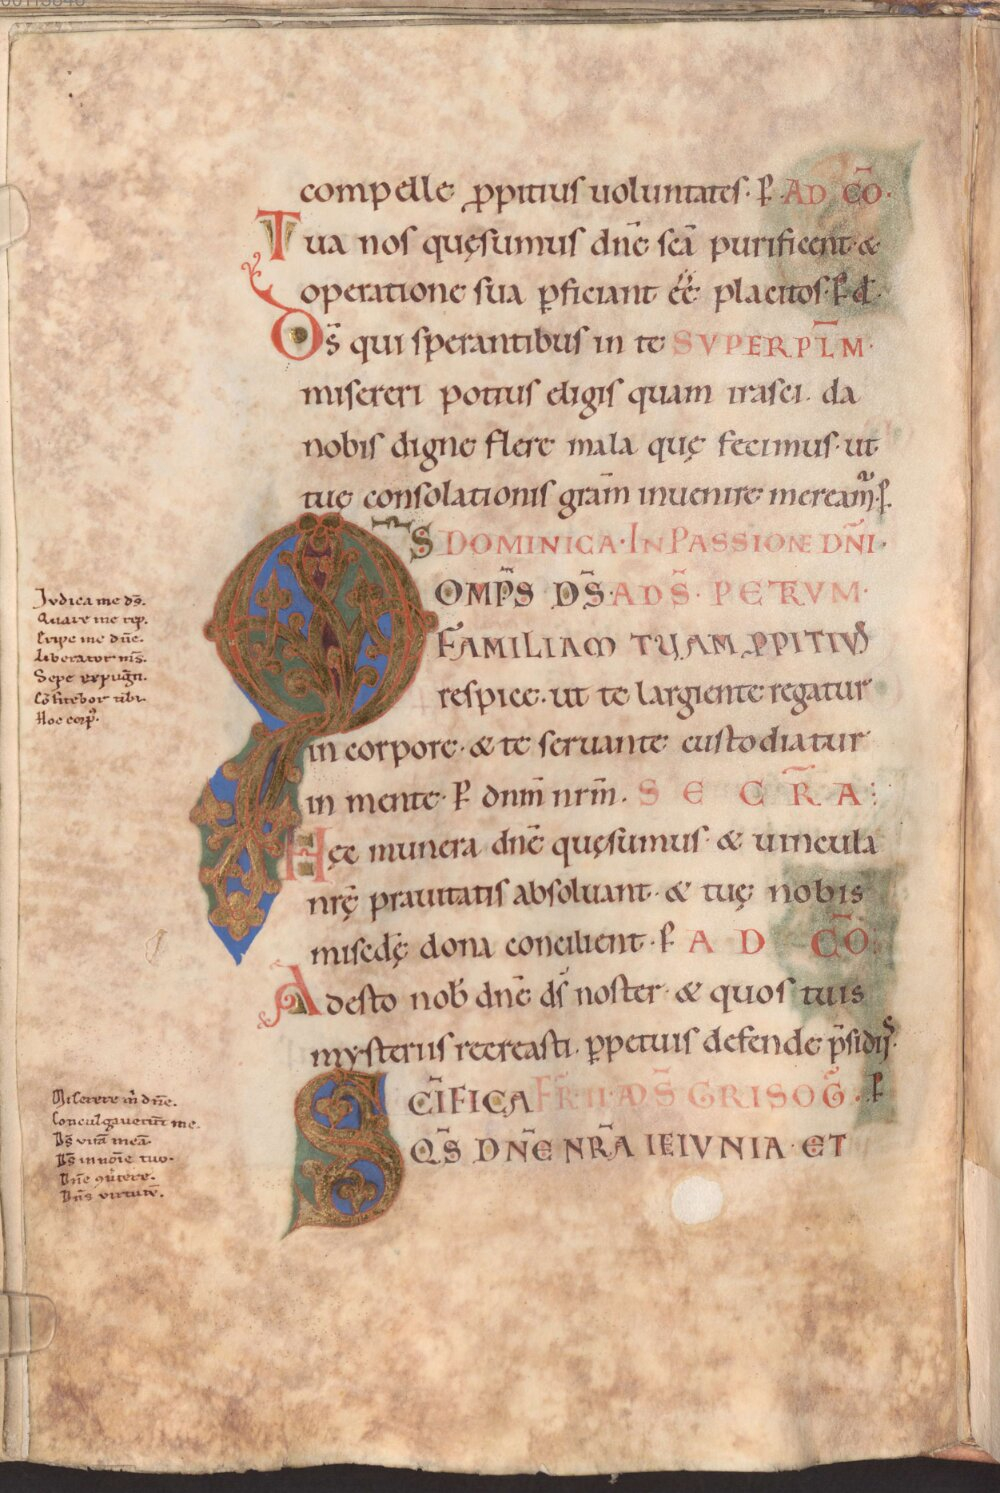 compelle ꝓpitius uoluntates· ꝑ AD CŌ·
Tua nos quęsumus dn̄e sc̄a purificent· &
operatione sua ꝑficiant eē placitos· ꝑ d̄·
D̄s qui sperantibus in te SVPER PL̄M·
misereri potius eligis quam irasci· da
nobis digne flere mala quę fecimus· ut
tuę consolationis grām inuenire meream̄· ꝑ
S DOMINICA· IN PASSIONE DN̄I·
OMP̄S D̄S· AD S̄· PETRVM·
FAMILIAM TUAM ꝓPITIUS
respice· ut te largiente regatur
in corpore· & te seruante custodiatur
in mente· ꝑ dnm̄ nrm̄· SECR̄A:
Hęc munera dn̄e quęsumus· & uincula
nrę̄ prauitatis absoluant· & tuę nobis
misc̄dę dona concilient· ꝑ AD CŌ:
Adesto nob̄ dn̄e d̄s noster· & quos tuis
mysteriis recreasti· ꝑpetuis defende p̄sidiis·
SC̄IFICA FR̄ II AD S̄ GRISOḠ· ꝑ
Q̄S DN̄E NR̄A IEIVNIA· ET
Judica me d̄s·
Quare me rep̄·
Eripe me dn̄e·
Liberator m̄s·
Sepe expugn̄·
Cōfitebor tibi·
Hoc corp̄·
Miserere m̄ dn̄e·
Conculcauerunt me·
D̄s uitā meā·
D̄s in nōie tuo·
Dn̄e ꝯuertere·
Dn̄s uirtutū·